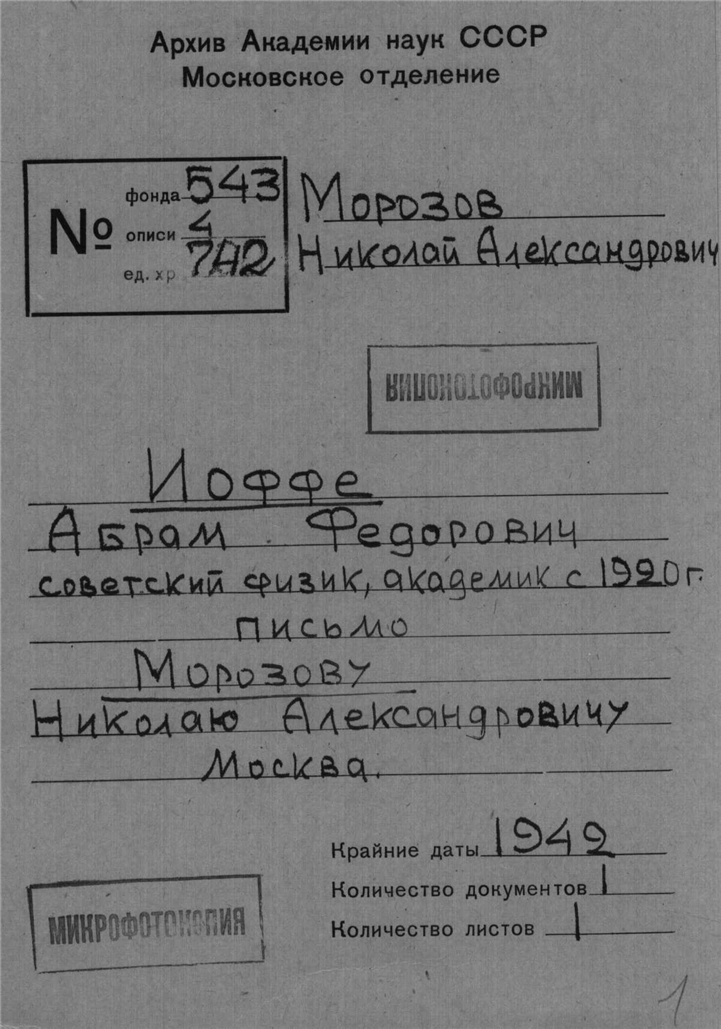 Архив Академии наук СССР
Московское отделение
№
фонда 543
описи 4
ед. хр 742
Морозов
Николай Александрович
МИКРОФОТОКОПИЯ
Иоффе
Абрам Федорович
советский физик, академик с 1920г.
письмо
Морозову
Николаю Александровичу
Москва.
Крайние даты 1942
Количество документов 1
Количество листов 1
МИКРОФОТОКОПИЯ
1